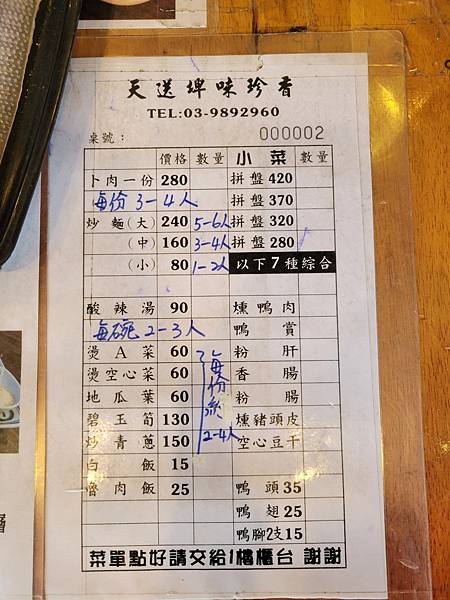 天送埤味珍香
TEL:03-9892960
桌號： 000002
價格 數量 小菜 數量
卜肉一份 280 拼盤 420
每份 3-4人 拼盤 370
炒麵(大) 240 5-6人 拼盤 320
(中) 160 3-4人 拼盤 280
(小) 80 1-2人 以下7種綜合
酸辣湯 90 燻鴨肉
每碗 2-3人 鴨賞
燙A菜 60 粉肝
燙空心菜 60 香腸
地瓜葉 60 粉腸
碧玉筍 130 燻豬頭皮
炒青蔥 150 空心豆干
每份約
2-4人
白飯 15
魯肉飯 25 鴨頭 35
鴨翅 25
鴨腳2支 15
菜單點好請交給1樓櫃台 謝謝
層